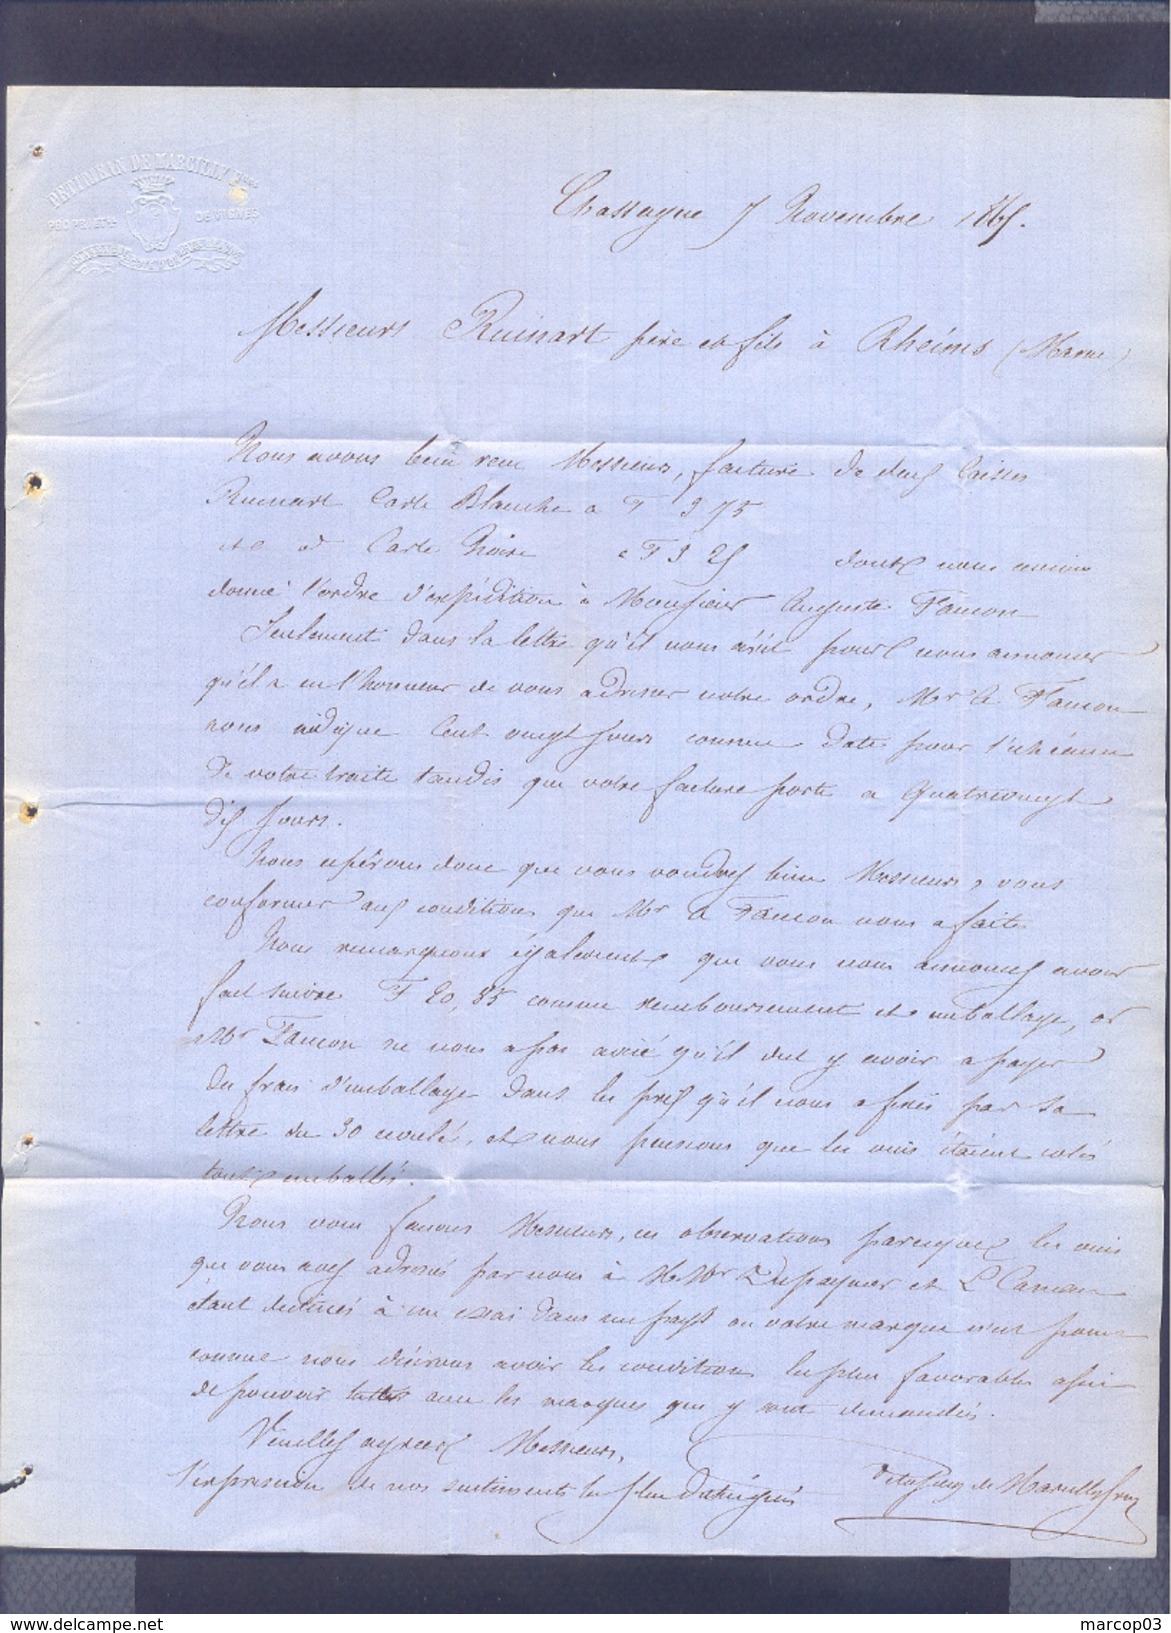 PETITJEAN DE MARCILLY Fres
PROPRIETres DE VIGNES
Chassagne 7 Novembre 1865.
Messieurs Ruinart père et fils à Rheims (Marne)
Nous avons bien reçu Messieurs, facture de deux Caisses
Ruinart Carte Blanche a F 3 75
et Carte Noire a F 3 25 dont nous avions
donné l'ordre d'expédition à Monsieur Auguste Faucon
Seulement dans la lettre qu'il nous écrit pour nous annoncer
qu'il a eu l'honneur de vous adresser notre ordre, Mr A Faucon
nous indique Cent vingt jours comme date pour l'échéance
de votre traite tandis que votre facture porte a Quatrevingt
dix jours.
Nous espérons donc que vous voudrez bien Messieurs, vous
conformer aux conditions que Mr A Faucon nous a faites
Nous remarquons également que vous nous annoncez avoir
fait suivre F 20,85 comme remboursement et emballage, or
Mr Faucon ne nous a pas avisé qu'il dut y avoir a payer
des frais d'emballage dans les prix qu'il nous a fixés par sa
lettre du 30 écoulé, et nous pensions que les vins étaient cotés
tout emballés.
Nous vous faisons Messieurs, ces observations parceque les vins
que vous avez adressés par nous à M Mr et L
étant destinés à un essai dans un pays ou votre marque n'est point
connue nous désirons avoir les conditions les plus favorables afin
de pouvoir lutter avec les marques qui y sont demandées.
Veuillez agréer Messieurs,
l'expression de nos sentiments les plus distingués
Petitjean de Marcilly frères
marcop03